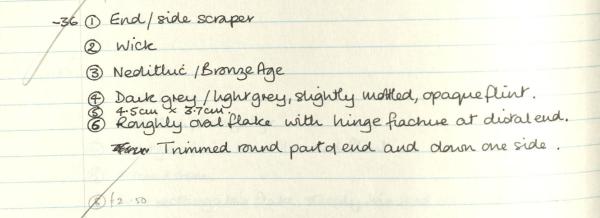 -36 ① End/side scraper
② Wick
③ Neolithic/Bronze Age
④ Dark grey/light grey, slightly mottled, opaque flint.
⑤ 4.5cm x 3.7cm
⑥ Roughly oval flake with hinge fracture at distal end.
Trimmed round part of end and down one side.
⑧ £2.50